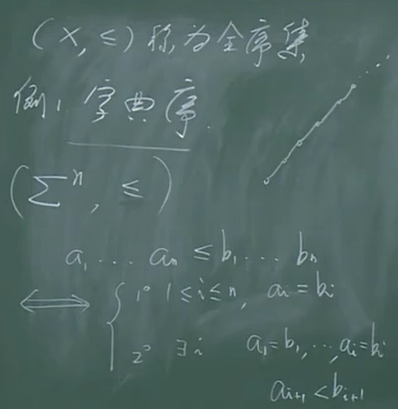 (X, ≤) 称为全序集
例1. 字典序.
(Σⁿ, ≤)
a₁ ... aₙ ≤ b₁ ... bₙ
⟺ { 1° 1≤i≤n, aᵢ=bᵢ
2° ∃i a₁=b₁, ..., aᵢ=bᵢ
aᵢ₊₁<bᵢ₊₁